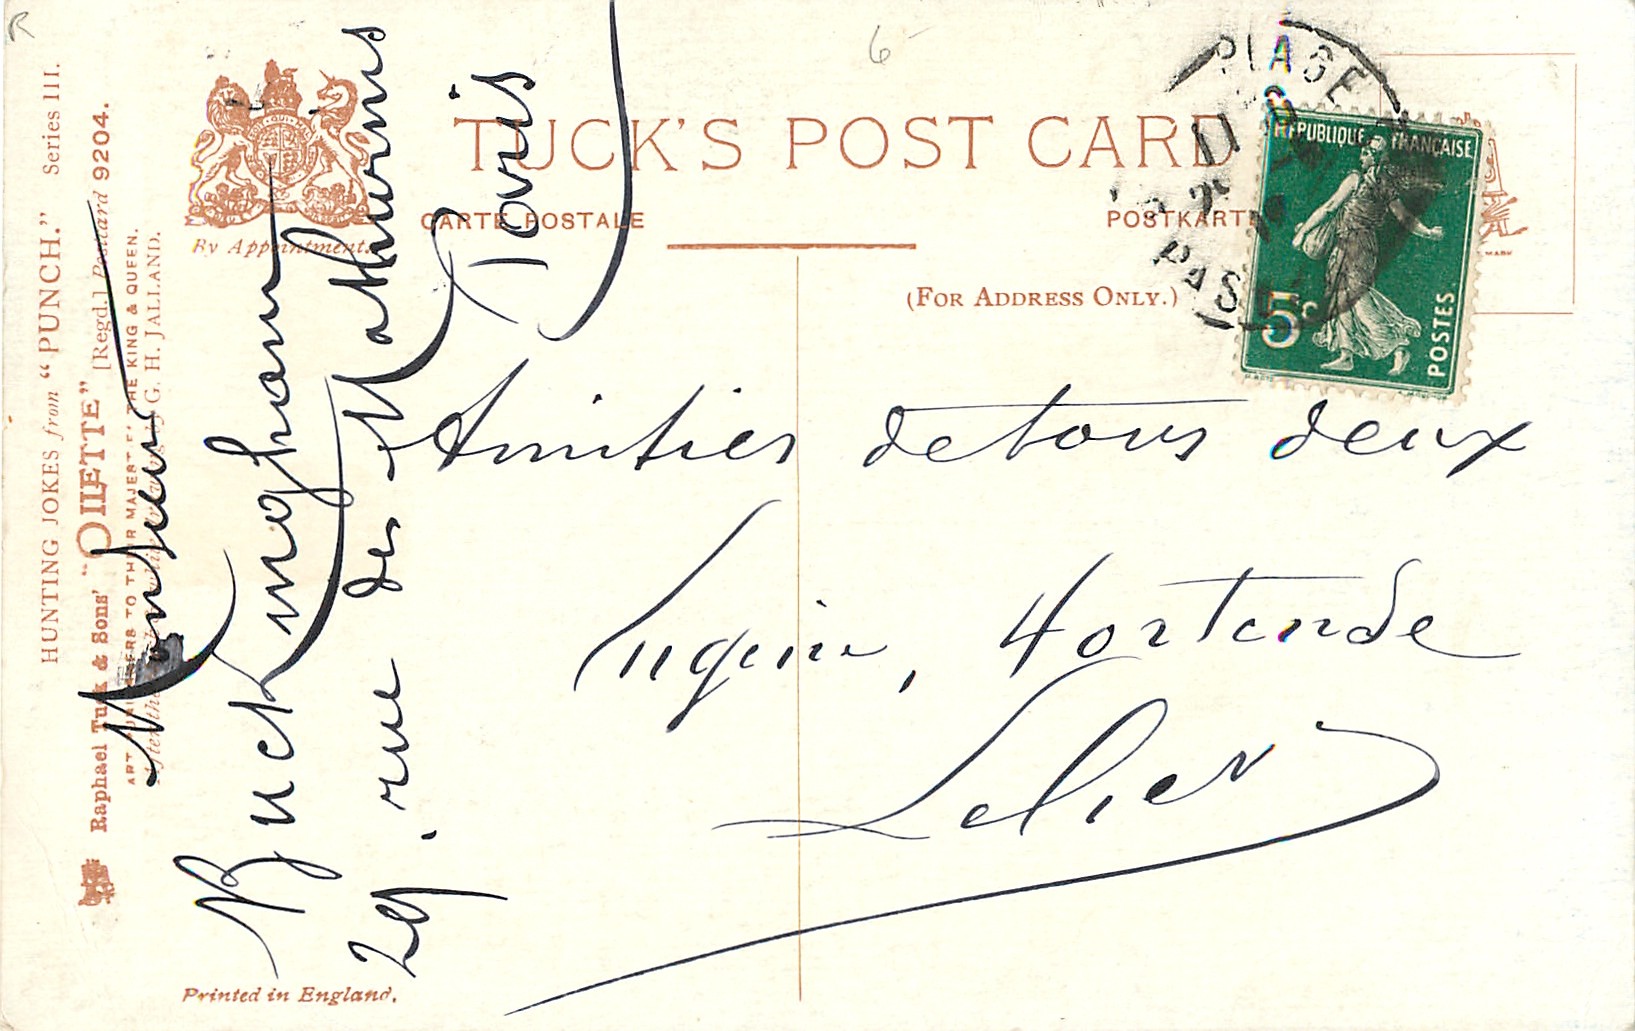 HUNTING JOKES from "PUNCH." Series III.
Raphael Tuck & Sons' "OILETTE" [Regd.] Postcard 9204.
ART PUBLISHERS TO THEIR MAJESTIES THE KING & QUEEN.
G. H. JALLAND.
By Appointment.
TUCK'S POST CARD
CARTE POSTALE
POSTKARTE
(FOR ADDRESS ONLY.)
Printed in England.
Monsieur
Buckingham
29, rue des Mathurins
Paris
Amitiés de tous deux
Hortense
PLAGE
11
PAS
RÉPUBLIQUE FRANÇAISE
5c
POSTES
MARK
6
R